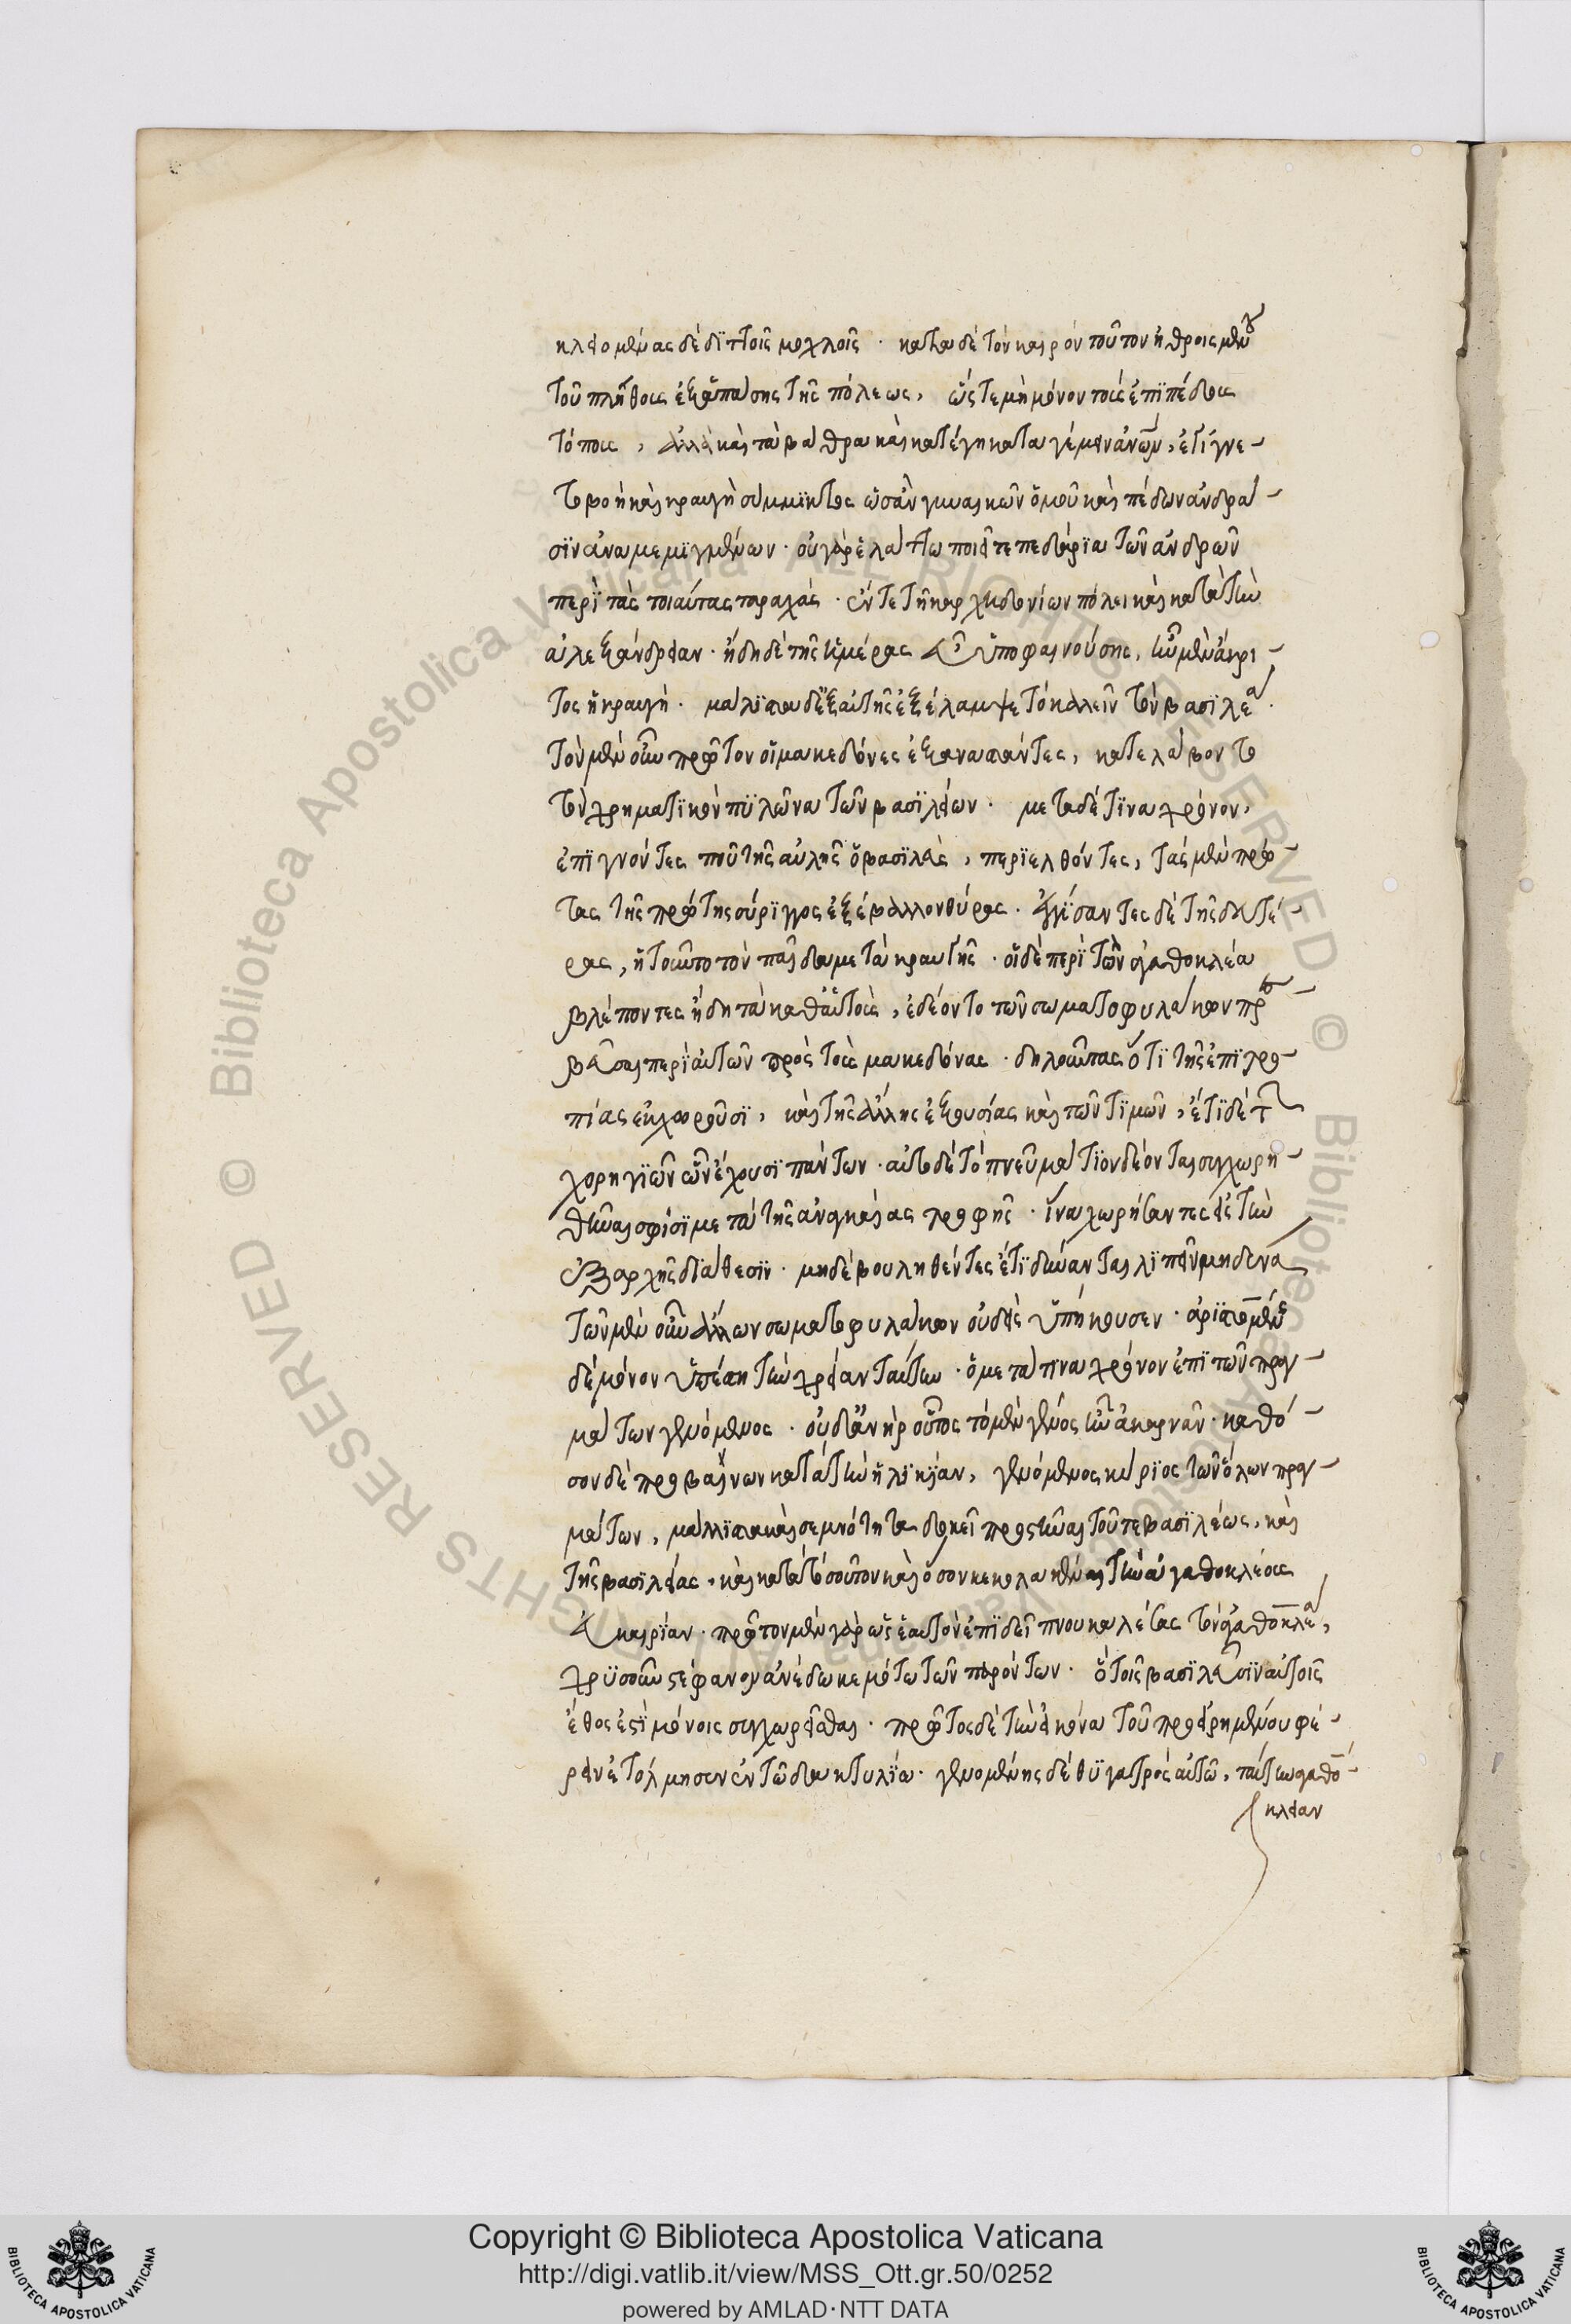 κλειομένας δὲ διττοῖς μοχλοῖς · κατὰ δὲ τὸν καιρὸν τοῦτον ἠθροισμένου
τοῦ πλήθους ἐξ ἁπάσης τῆς πόλεως, ὥστε μὴ μόνον τοὺς ἐπιπέδους
τόπους, ἀλλὰ καὶ τὰ βάθρα καὶ κατέγη καταγέμειν ἀνων, ἐγίγνε-
το βοὴ καὶ κραυγὴ σύμμικτος ὡσὰν γυναικῶν ὁμοῦ καὶ παίδων ἀνδρά-
σιν ἀναμεμιγμένων · οὐ γὰρ ἐλάττω ποιεῖ τε παιδάρια τῶν ἀνδρῶν
περὶ τὰς τοιαύτας ταραχὰς · ἔν τε τῇ καρχηδονίων πόλει καὶ κατὰ τὴν
ἀλεξάνδρειαν · ἤδη δὲ τῆς ἡμέρας ὑποφαινούσης, ἦν μὲν ἄκρι-
τος ἡ κραυγή · μάλιστα δ' ἐξ αὐτῆς ἐξέλαμψε τὸ καλεῖν τὸν βασιλέα ·
τὸν μὲν οὖν πρῶτον οἱ μακεδόνες ἐξαναστάντες, κατελάβοντο
τὸν χρηματικὸν πυλῶνα τῶν βασιλείων · μετὰ δέ τινα χρόνον,
ἐπιγνόντες ποῦ τῆς αὐλῆς ὁ βασιλεὺς, περιελθόντες, τὰς μὲν πρώ-
τας τῆς πρώτης σύριγγος ἐξέβαλλον θύρας · ἐγγίσαντες δὲ τῆς δευτέ-
ρας, ᾐτοῦντο τὸν παῖδα μετὰ κραυγῆς · οἱ δὲ περὶ τὸν ἀγαθοκλέα
βλέποντες ἤδη τὰ καθ' αὑτοὺς, ἐδέοντο τῶν σωματοφυλάκων πρ
βεῦσαι περὶ αὐτῶν πρὸς τοὺς μακεδόνας · δηλοῦντας ὅτι τῆς ἐπιτρο-
πίας ἐκχωροῦσι, καὶ τῆς ἄλλης ἐξουσίας καὶ τῶν τιμῶν, ἔτι δὲ τῶν
χορηγιῶν ὧν ἔχουσι πάντων · αὐτὸ δὲ τὸ πνευμάτιον δέονται συγχωρη-
θῆναι σφίσι μετὰ τῆς ἀναγκαίας τροφῆς · ἵνα χωρήσαντες εἰς τὴν
ἐξ ἀρχῆς διάθεσιν · μηδὲ βουληθέντες ἔτι δύνανται λυπεῖν μηδένα
τῶν μὲν οὖν ἄλλων σωματοφυλάκων οὐδεὶς ὑπήκουσεν · ἀριστομένης
δὲ μόνον ὑπέστη τὴν χρείαν ταύτην · ὁ μετά τινα χρόνον ἐπὶ τῶν πραγ-
μάτων γενόμενος · ὁ δ' ἀνὴρ οὗτος τὸ μὲν γένος ἦν ἀκαρνὰν · καθό-
σον δὲ προβαίνων κατὰ τὴν ἡλικίαν, γενόμενος κύριος τῶν ὅλων πραγ-
μάτων, μάλλιστα καὶ σεμνότητα δοκεῖ προστῆναι τοῦ τε βασιλέως, καὶ
τῆς βασιλείας, καὶ κατὰ τοσοῦτον καὶ ὅσον κεκολακευκέναι τὴν ἀγαθοκλέους
εὐκαιρίαν · πρῶτον μὲν γὰρ ὡς ἑαυτὸν ἐπὶ δεῖπνου καλέσας τὸν ἀγαθοκλέα,
χρυσοῦν στέφανον ἀνέδωκε μότω τῶν παρόντων · ὃ τοῖς βασιλεῦσιν αὐτοῖς
ἔθος ἐστὶ μόνοις συγχωρεῖσθαι · πρῶτος δὲ τὴν εἰκόνα τοῦ προειρημένου φέ-
ρειν ἐτόλμησεν ἐν τῷ δακτυλίῳ · γενομένης δὲ θυγατρὸς αὐτῷ, ταύτην ἀγαθό-
κλειαν
Copyright © Biblioteca Apostolica Vaticana
http://digi.vatlib.it/view/MSS_Ott.gr.50/0252
powered by AMLAD·NTT DATA